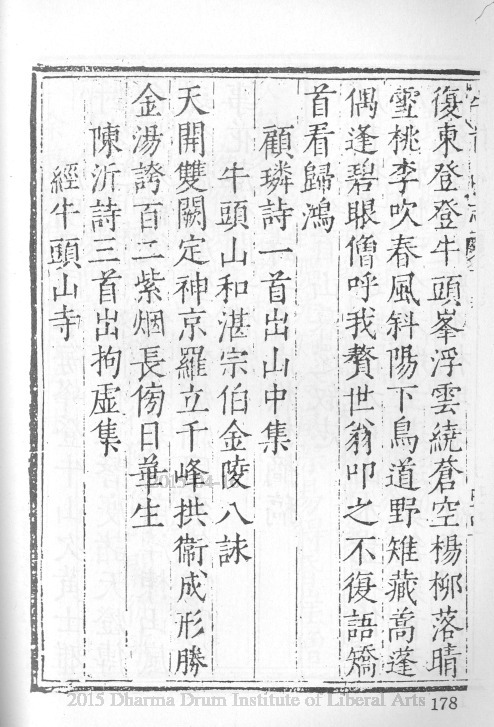 復東登登牛頭峯浮雲繞蒼空楊柳落晴
雪桃李吹春風斜陽下鳥道野雉藏蒿蓬
偶逢碧眼僧呼我贅世翁叩之不復語矯
首看歸鴻
顧璘詩一首出山中集
牛頭山和湛宗伯金陵八詠
天開雙闕定神京羅立千峰拱衛成形勝
金湯誇百二紫烟長傍日華生
陳沂詩三首出拘虛集
經牛頭山寺
2015 Dharma Drum Institute of Liberal Arts 178